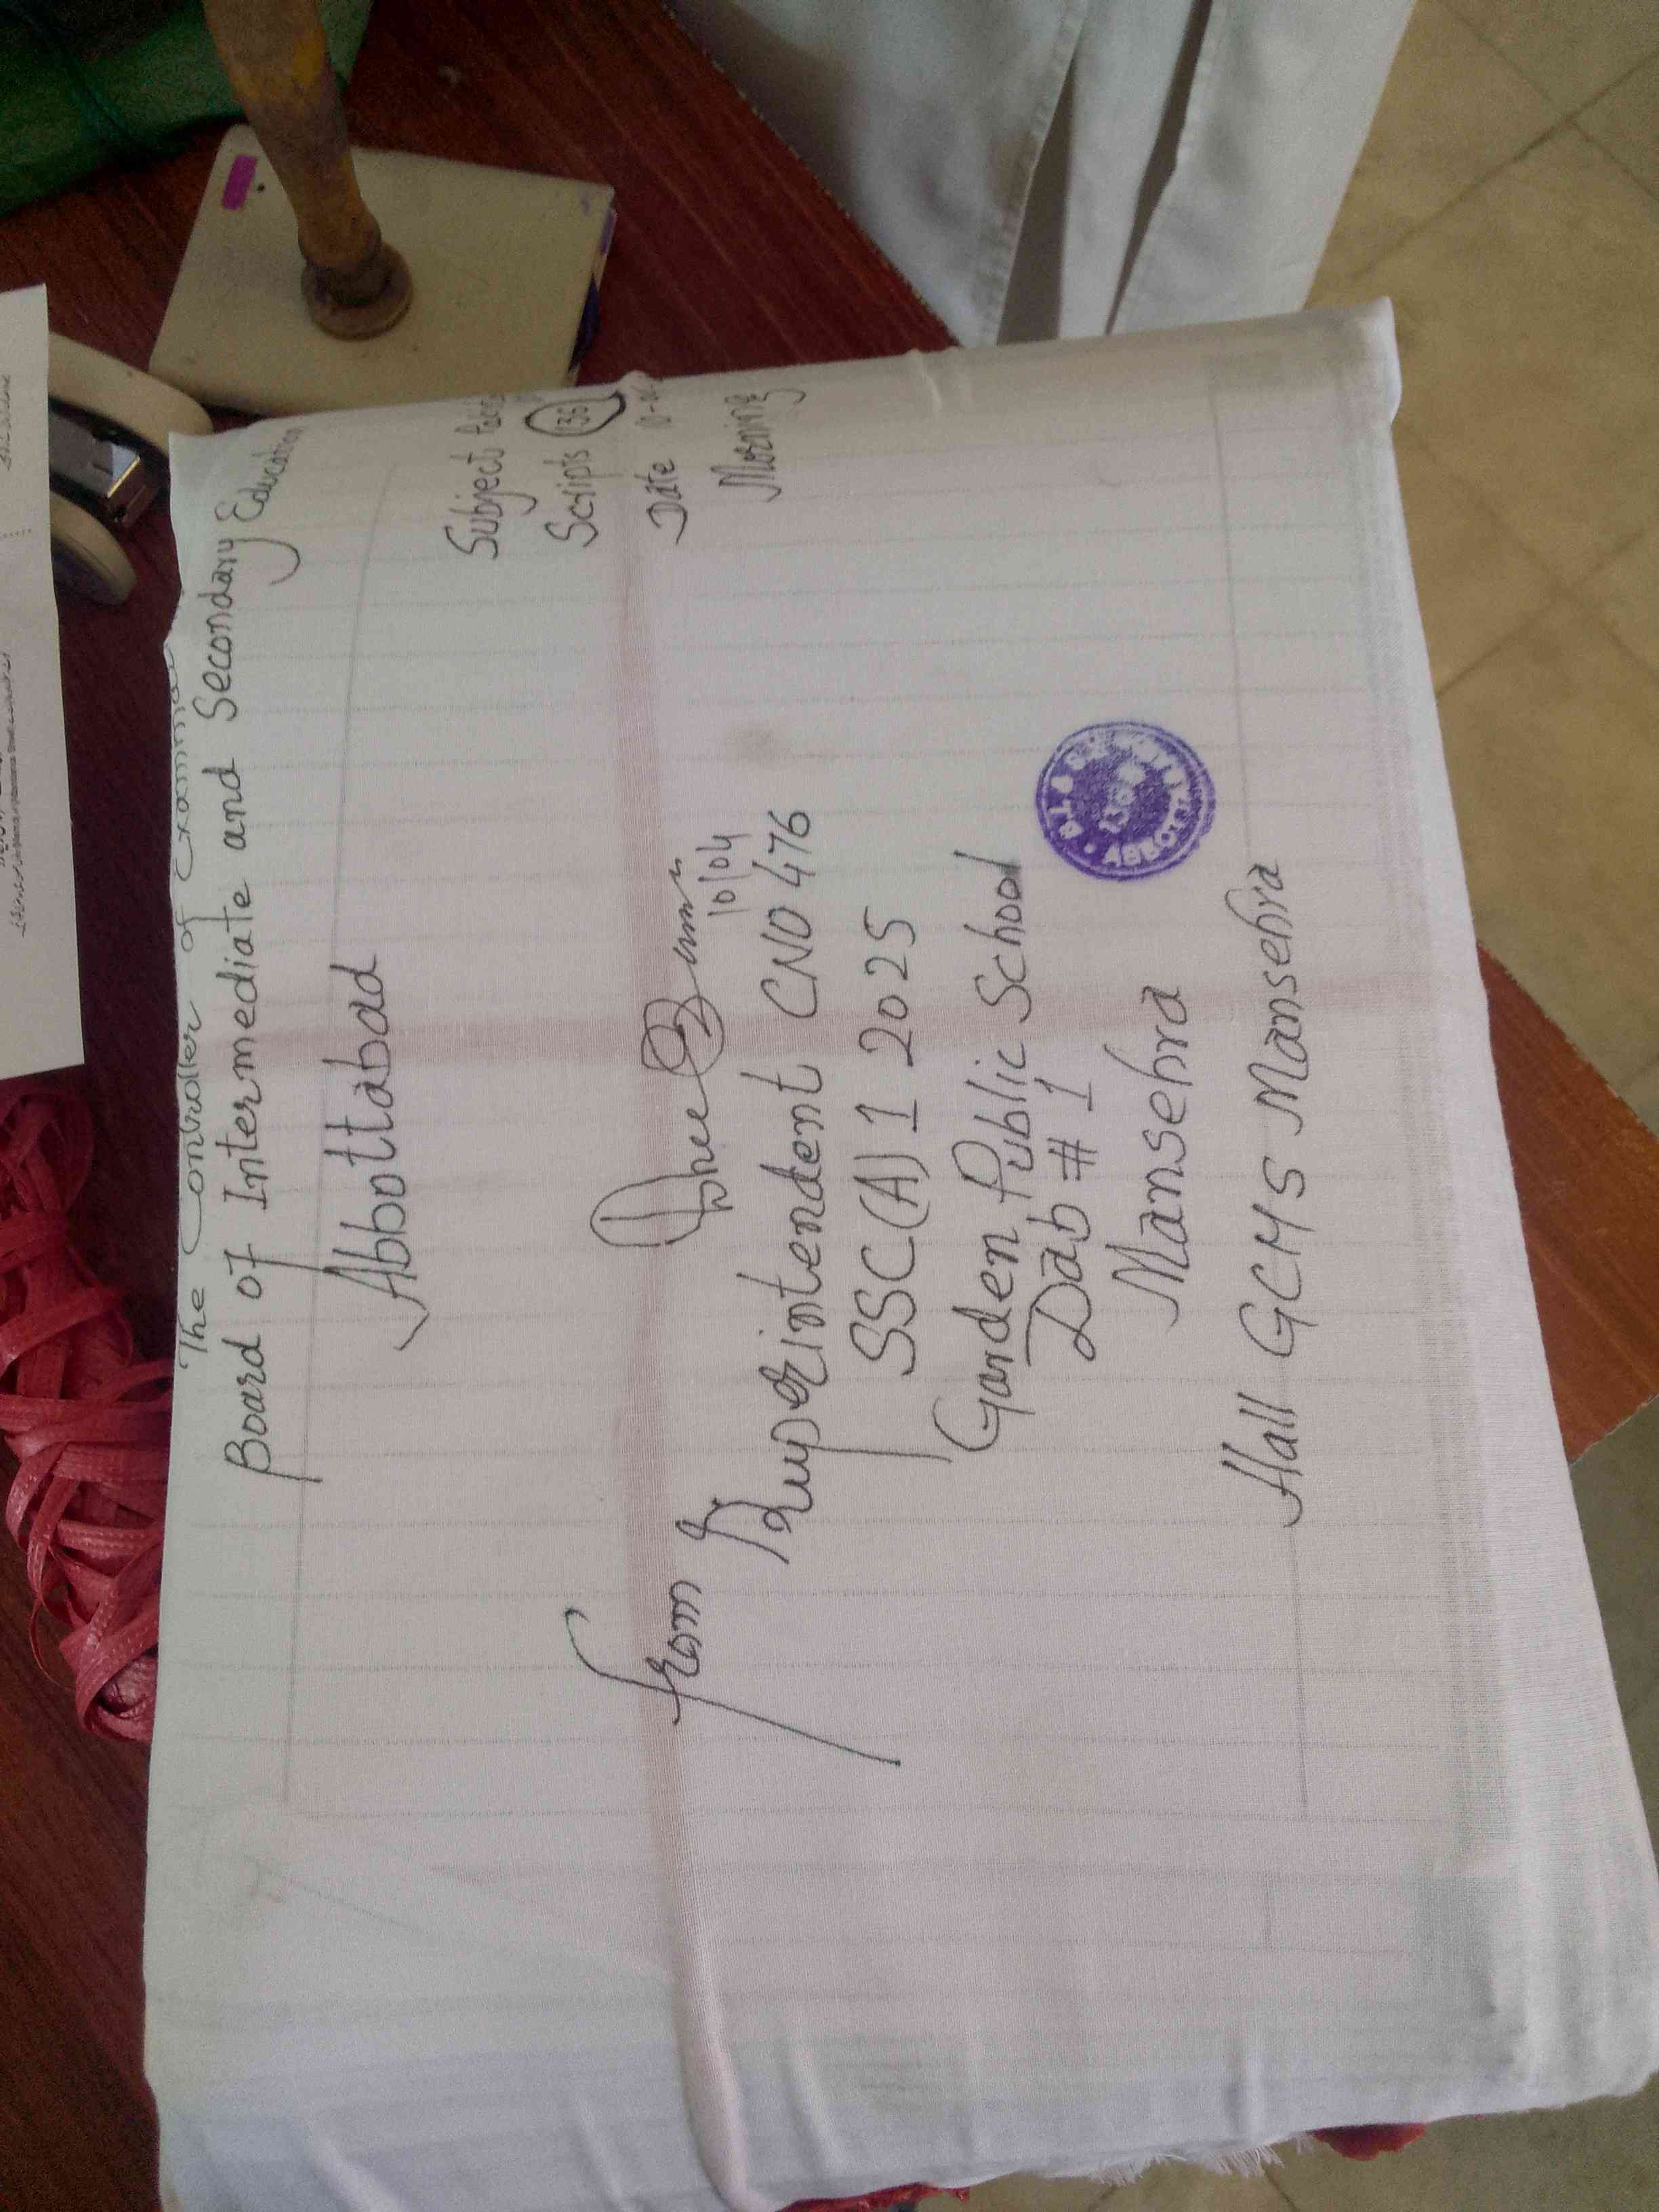 The Controller of
Board of Intermediate and Secondary Education
Abbottabad
Subject
Scripts 136
Date 10-
Morning
10/04
from Superintendent CNO 476
SSC(A) 1 2025
Garden Public School
Dab # 1
Mansehra
Hall GCMS Mansehra
ABBOTTABAD